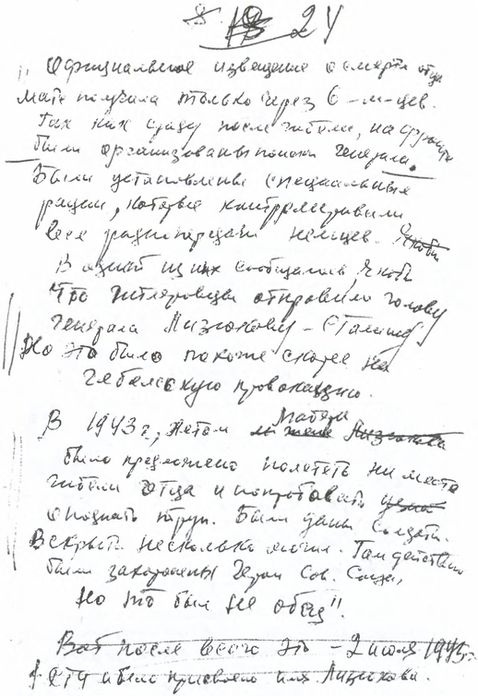 24
" Официальное извещение о смерти отца
мать получила только через 6-м-цев.
Так как сразу после гибели, на фронте
были организованы поиски генерала.
Были установлены специальные
рации, которые контролировали
все радиопередачи немцев.
В одной из них сообщалось, якобы
что гитлеровцы отправили голову
генерала Лизюкову - Сталину
Но это было похоже скорее на
гебельскую провокацию.
В 1943 г, летом матери Лизюкова
было предложено полететь на место
гибели отца и попробовать
опознать труп. Были даны солдаты.
Вскрыто несколько могил. Там действ
были захоронены Герои Сов. Союза,
Но то был не отец".
Вот после всего это - 2 июля 1945 г.
было присвоено имя Лизюкова.